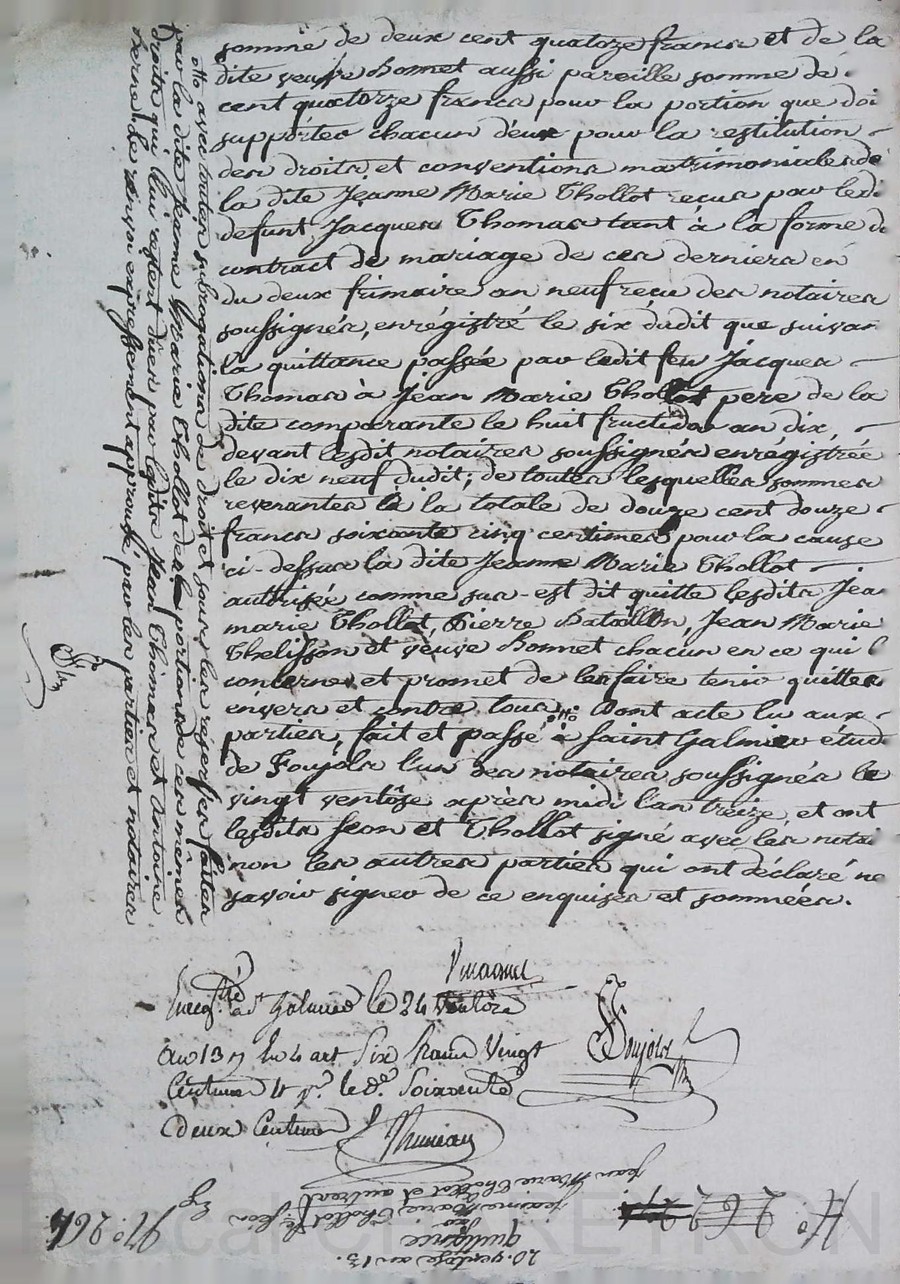 somme de deux cent quatoze francs et de la
dite veuve Bonnet aussi pareille somme de
cent quatorze francs pour la portion que doi
supporter chacun d'eux pour la restitution
des droits et conventions matrimoniales de
la dite Jeanne Marie Thollot reçus par ledi
defunt Jacques Thomas tant à la forme d
contract de mariage de ces derniers en
du deux frimaire an neuf reçu des notaires
soussignés, enrégistré le six dudit que suivan
la quittance passée par ledit feu Jacques
Thomas à Jean Marie Thollot pere de la
dite comparante le huit fructidor an dix,
devant lesdit notaires soussignés enrégistrée
le dix neuf dudit; de toutes lesquelles sommes
revenantes à la totale de douze cent douze
francs soixante cinq centimes pour la cause
ci-dessus la dite Jeanne Marie Thollot
autorisée comme sus-est dit quitte lesdits Jea
marie Thollot, Pierre Bataillon, Jean Marie
Thelisson et veuve Bonnet chacun en ce qui l
concerne et promet de les faire tenir quittes
envers et contre tous, Dont acte lu aux
parties, fait et passé à Saint Galmier etude
de Foujols l'un des notaires soussignés le
vingt ventôse après midi l'an treize, et ont
lesdits Jean et Thollot signé avec les notai
non les autres parties qui ont déclaré ne
savoir signer de ce enquises et sommées.
avec toutes subrogations de droit et sous les réserves faites
par la dite Jeanne Marie Thollot des portions de ces mêmes
droits qui lui restent dues par lesdits Jean Thomas et Antoine
renvoi expressement approuvé par les parties et notaires
Enreg.tré à St Galmier le 24 Ventôse
an 13 Six francs Vingt
Centimes Soixante
deux Centimes
Foujols
20. ventose an 13.
quittance
Jeanne Marie Thollot f.e Jean
Jean Marie Thollot et autres
N.o 264
N.o 262
Pascal CHAREYRON